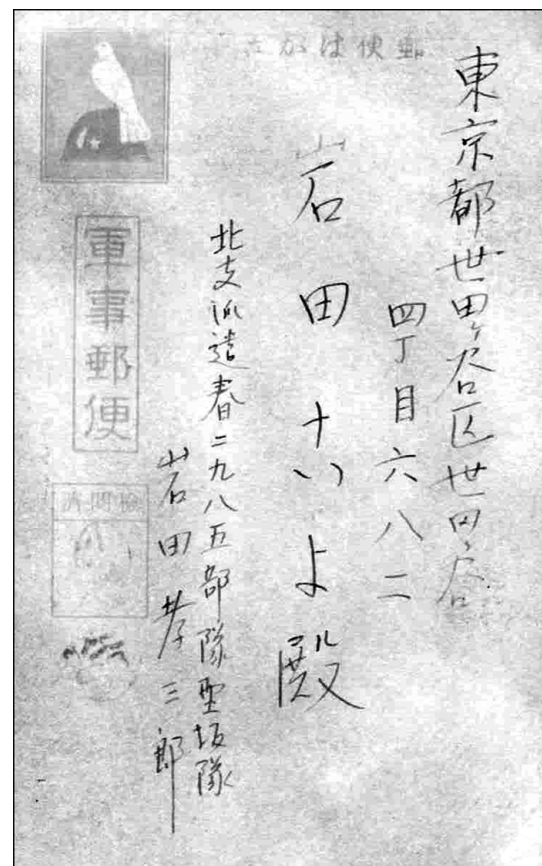 郵便はがき
東京都世田ヶ谷区世田ヶ谷
四丁目六八二
岩田 よ殿
北支派遣春二九八五部隊 坂隊
岩田孝三郎
軍事郵便
検閲済